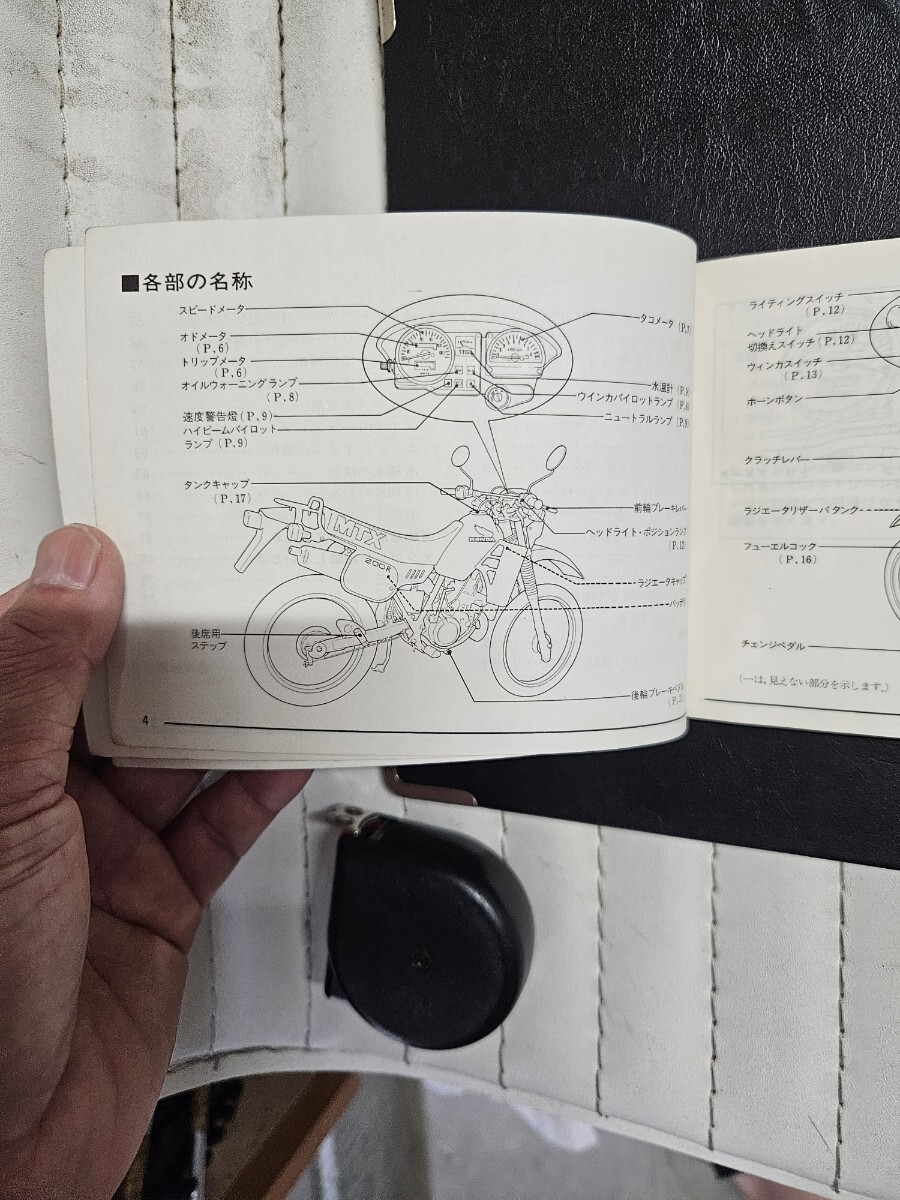 ■各部の名称
スピードメータ
オドメータ
(P.6)
トリップメータ
(P.6)
オイルウォーニングランプ
(P.8)
速度警告燈(P.9)
ハイビームパイロット
ランプ(P.9)
タンクキャップ
(P.17)
後席用
ステップ
タコメータ (P.7)
水温計
ウインカパイロットランプ
ニュートラルランプ
前輪ブレーキレバー
ヘッドライト・ポジションランプ
ラジエータキャップ
バッテリ
後輪ブレーキペダル
MTX
200R
HONDA
4
ライティングスイッチ
(P.12)
ヘッドライト
切換えスイッチ(P.12)
ウィンカスイッチ
(P.13)
ホーンボタン
クラッチレバー
ラジエータリザーバタンク
フューエルコック
(P.16)
チェンジペダル
(┈は、見えない部分を示します。)